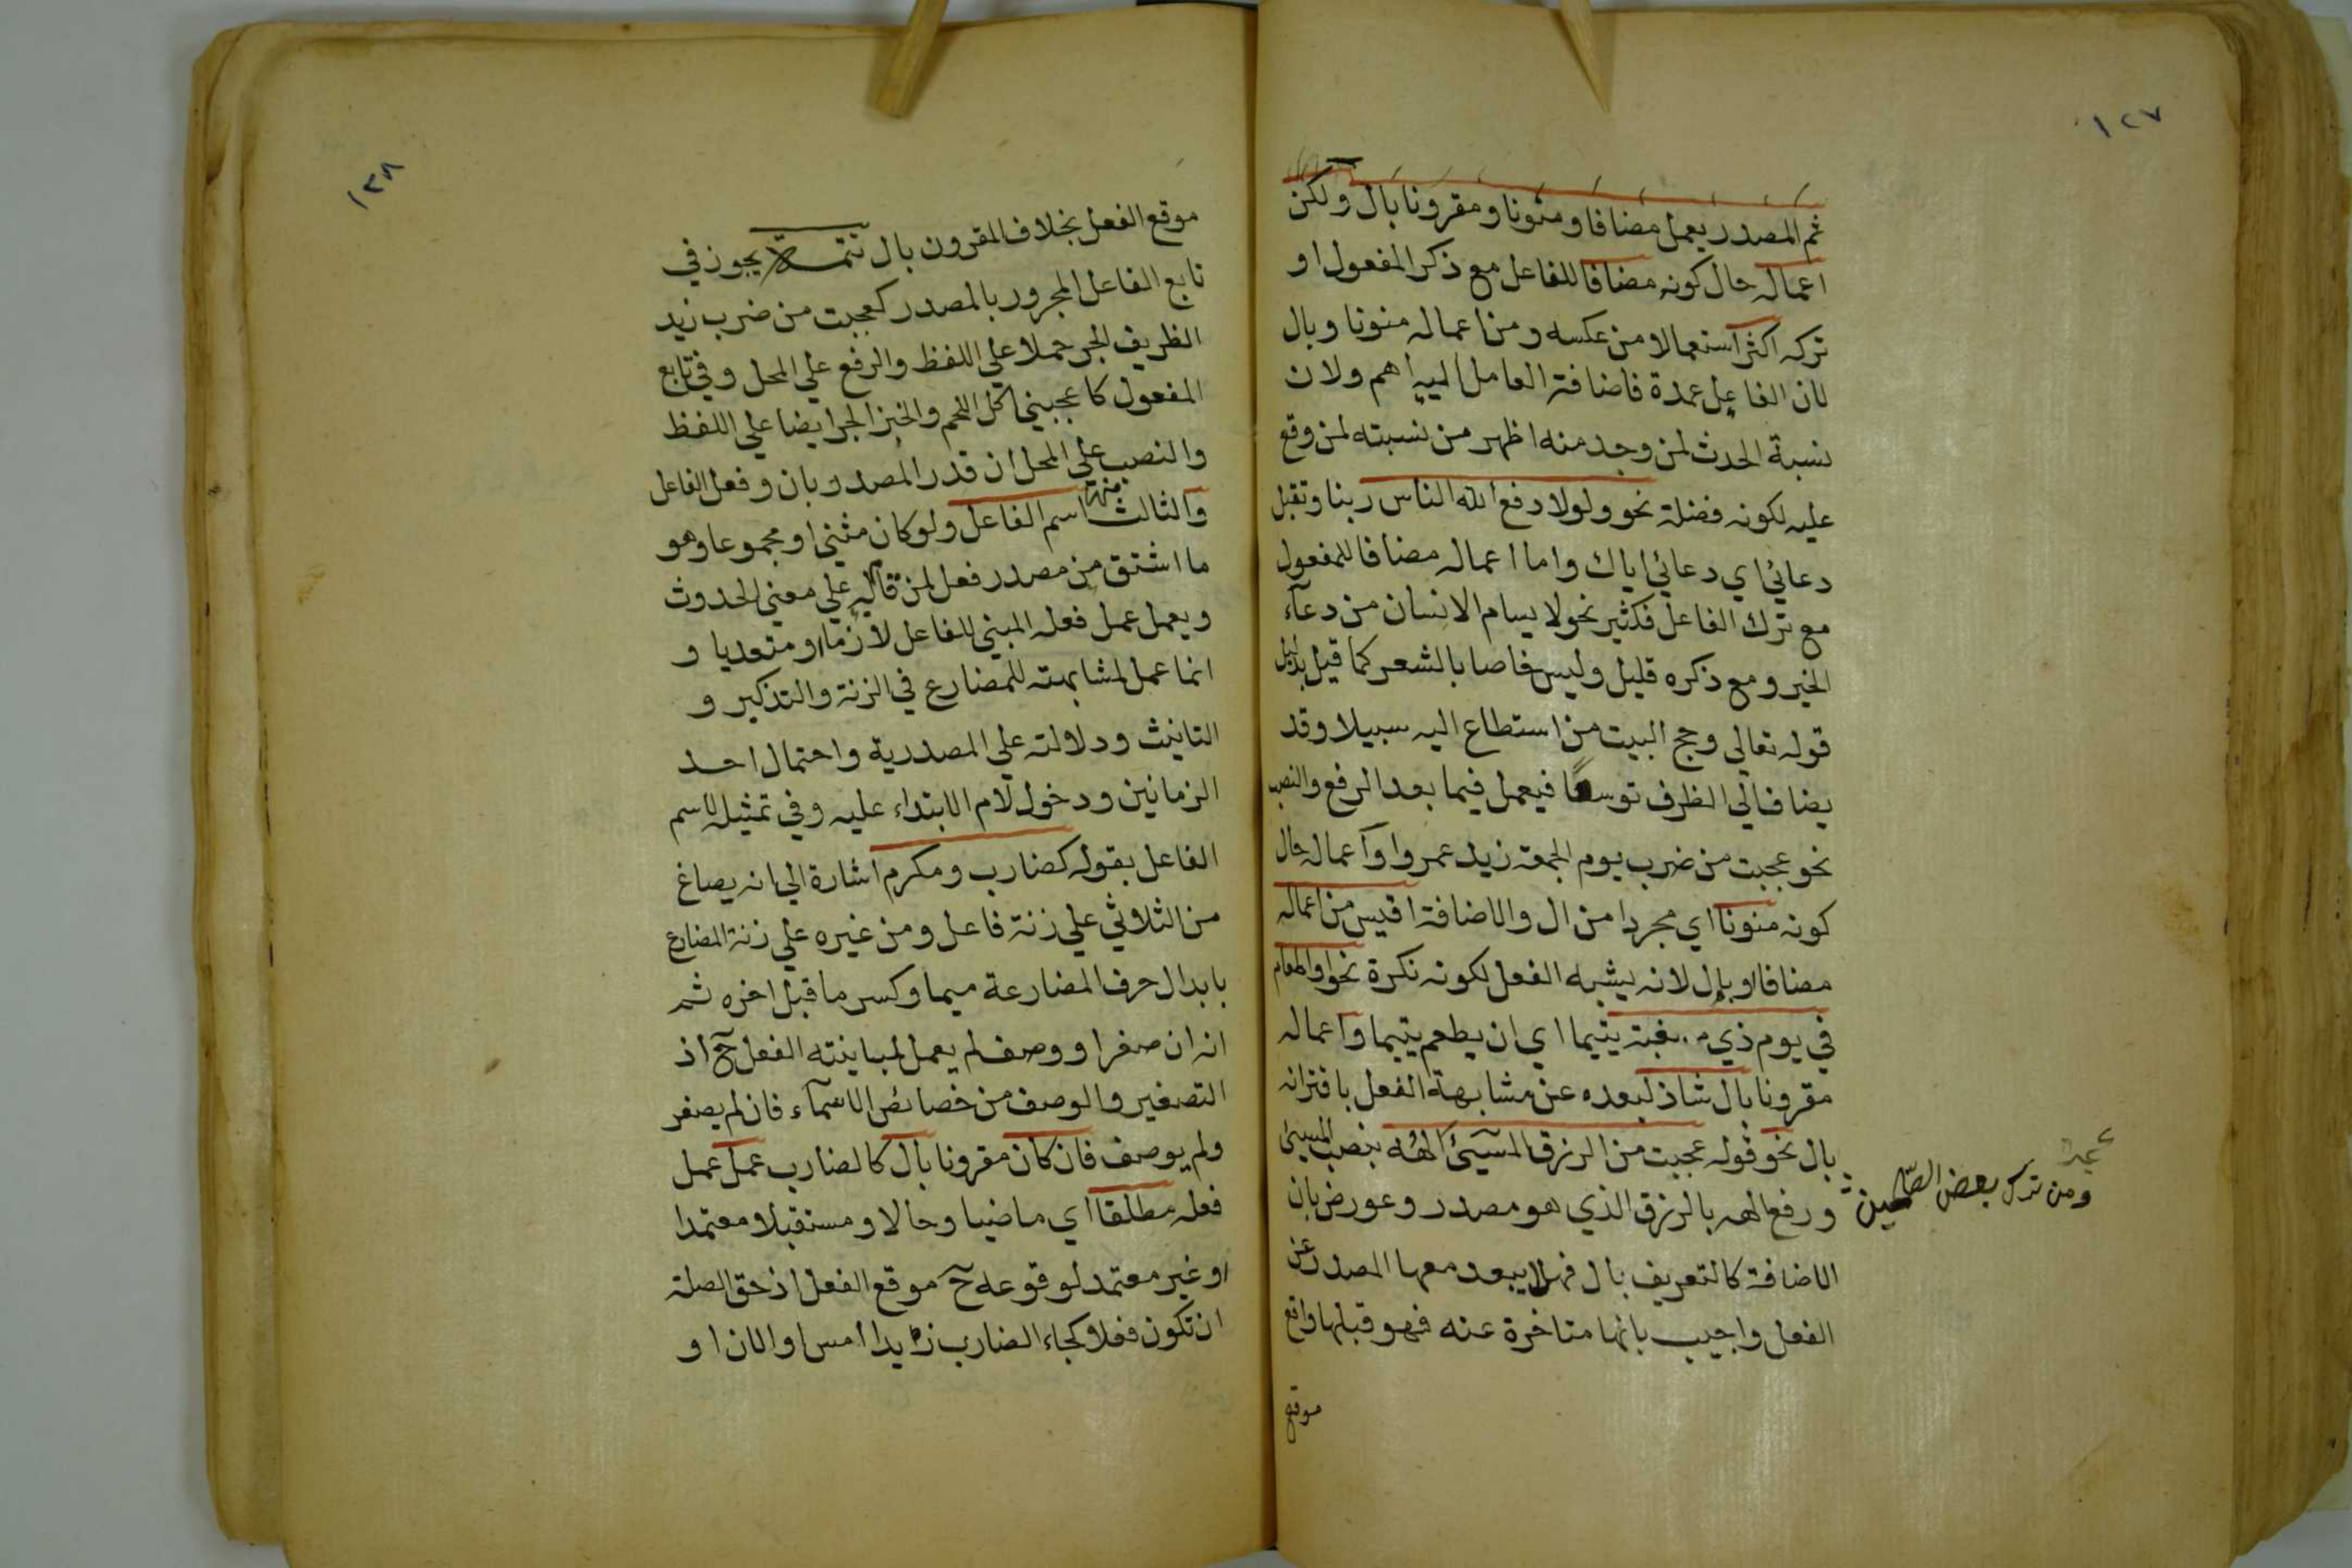 ١٢٧
ثم المصدر يعمل مضافا ومنونا ومقرونا بال ولكن
اعماله حال كونه مضافا للفاعل مع ذكر المفعول او
تركه اكثر استعمالا من عكسه ومن اعماله منونا وبال
لان الفاعل عمدة فاضافة العامل اليه اهم ولان
نسبة الحدث لمن وجد منه اظهر من نسبته لمن وقع
عليه لكونه فضلة نحو ولولا دفع الله الناس ربنا وتقبل
دعائي اي دعائي اياك واما اعماله مضافا للمفعول
مع ترك الفاعل فكثير نحو لا يسام الانسان من دعآء
الخير ومع ذكره قليل وليس خاصا بالشعر كما قيل بدليل
قوله تعالى وحج البيت من استطاع اليه سبيلا وقد
يضاف الي الظرف توسعا فيعمل فيما بعد الرفع والنصب
نحو عجبت من ضرب يوم الجمعة زيد عمروا واعماله حال
كونه منونا اي مجردا من ال والاضافة اقيس من اعماله
مضافا او بال لانه يشبه الفعل لكونه نكرة نحو او اطعام
في يوم ذي مسغبة يتيما اي ان يطعم يتيما واعماله
مقرونا بال شاذ لبعده عن مشابهة الفعل باقترانه
بال نحو قوله عجبت من الرزق المسيئ الهه بنصب المسيئ
ورفع الهه بالرزق الذي هو مصدر وعورض بان
الاضافة كالتعريف بال فهلا يبعد معها المصدر عن
الفعل واجيب بانها متاخرة عنه فهو قبلها واقع
موقع
ومن ترك بعض الصالحين
١٢٨
موقع الفعل بخلاف المقرون بال تتمة يجوز في
تابع الفاعل المجرور بالمصدر كعجبت من ضرب زيد
الظريف الجر حملا علي اللفظ والرفع علي المحل وفي تابع
المفعول كاعجبني اكل اللحم والخبز الجر ايضا علي اللفظ
والنصب علي المحل ان قدر المصدر بان وفعل الفاعل
والثالث منها اسم الفاعل ولو كان مثني او مجموعا وهو
ما اشتق من مصدر فعل لمن قام به علي معني الحدوث
ويعمل عمل فعله المبني للفاعل لازما او متعديا و
انما عمل لمشابهته للمضارع في الزنة والتذكير و
التانيث ودلالته علي المصدرية واحتمال احد
الزمانين ودخول لام الابتداء عليه وفي تمثيله لاسم
الفاعل بقوله كضارب ومكرم اشارة الي انه يصاغ
من الثلاثي علي زنة فاعل ومن غيره علي زنة المضارع
بابدال حرف المضارعة ميما وكسر ما قبل اخره ثم
انه ان صغر او وصف لم يعمل لمباينته الفعل ح اذ
التصغير والوصف من خصائص الاسمآء فان لم يصغر
ولم يوصف فان كان مقرونا بال كالضارب عمل عمل
فعله مطلقا اي ماضيا وحالا ومستقبلا معتمدا
او غير معتمد لوقوعه ح موقع الفعل اذ حق الصلة
ان تكون فعلا كجاء الضارب زيدا امس او الان او